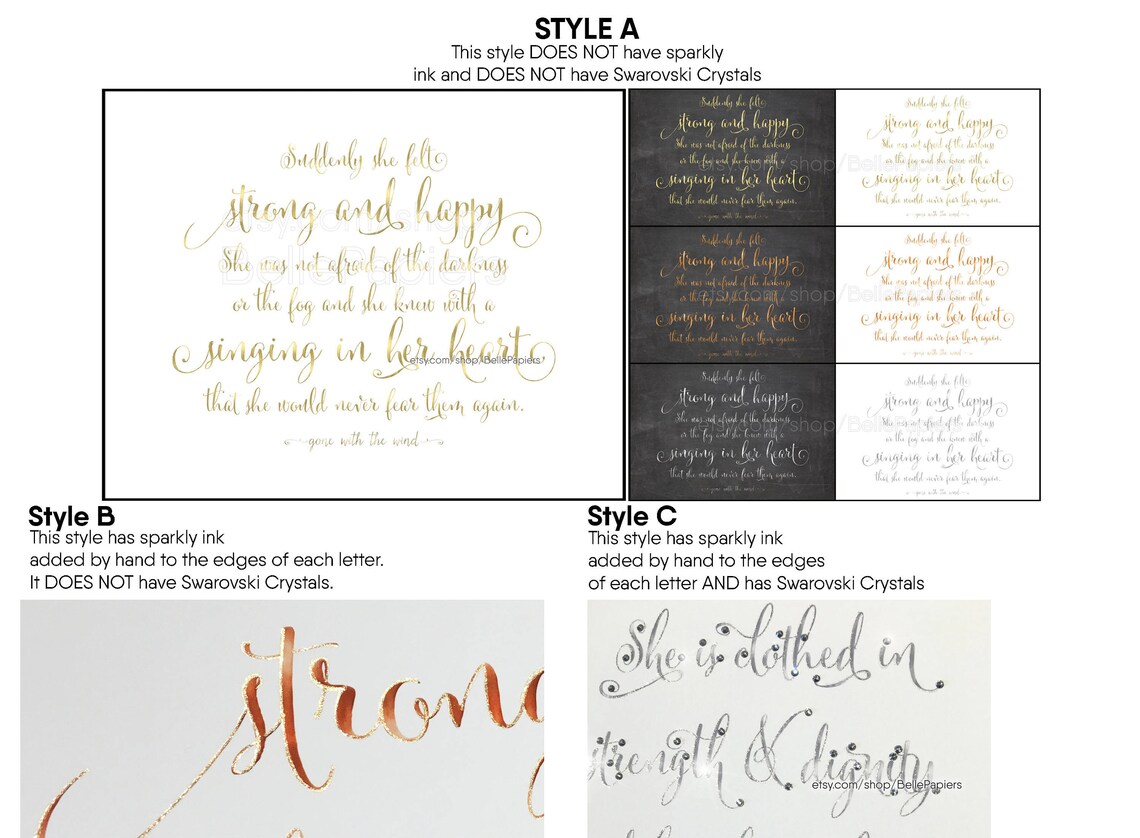 STYLE A
This style DOES NOT have sparkly
ink and DOES NOT have Swarovski Crystals
Suddenly she felt
strong and happy
She was not afraid of the darkness
or the fog and she knew with a
singing in her heart
etsy.com/shop/BellePapiers
that she would never fear them again.
gone with the wind
Suddenly she felt
strong and happy
She was not afraid of the darkness
or the fog and she knew with a
singing in her heart
that she would never fear them again.
gone with the wind
Suddenly she felt
strong and happy
She was not afraid of the darkness
or the fog and she knew with a
singing in her heart
that she would never fear them again.
gone with the wind
Suddenly she felt
strong and happy
She was not afraid of the darkness
or the fog and she knew with a
singing in her heart
that she would never fear them again.
gone with the wind
Suddenly she felt
strong and happy
She was not afraid of the darkness
or the fog and she knew with a
singing in her heart
that she would never fear them again.
gone with the wind
Suddenly she felt
strong and happy
She was not afraid of the darkness
or the fog and she knew with a
singing in her heart
that she would never fear them again.
gone with the wind
Suddenly she felt
strong and happy
She was not afraid of the darkness
or the fog and she knew with a
singing in her heart
that she would never fear them again.
gone with the wind
Style B
This style has sparkly ink
added by hand to the edges of each letter.
It DOES NOT have Swarovski Crystals.
strong
Style C
This style has sparkly ink
added by hand to the edges
of each letter AND has Swarovski Crystals
She is clothed in
strength & dignity
etsy.com/shop/BellePapiers